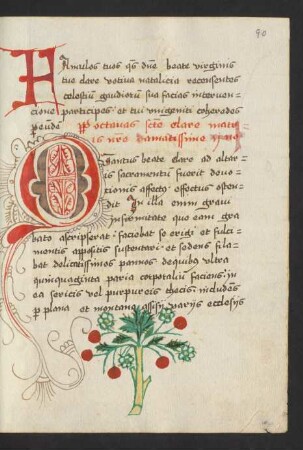 90
Famulos tuos qs dne beate virginis
tue clare votiva natalicia recensentes
celestiū gaudiorū sua facias interven-
cione participes et tui unigeniti coheredes
Per octavas scte clare
Quantus beate clare ad altar-
is sacramentū fuerit devo-
tionis affectꝰ effectus osten-
dit In illa enim gravi
infirmitate que eam gra
bato ascripserat faciebat se erigi et fulci-
mentis appositis sustentari et sedens fila-
bat delicatissimos pannos de quibꝰ ultra
quinquaginta paria corporaliū faciens in
ea sericis vel purpureis thecis includens
p plana et montana assisij varijs ecclesijs